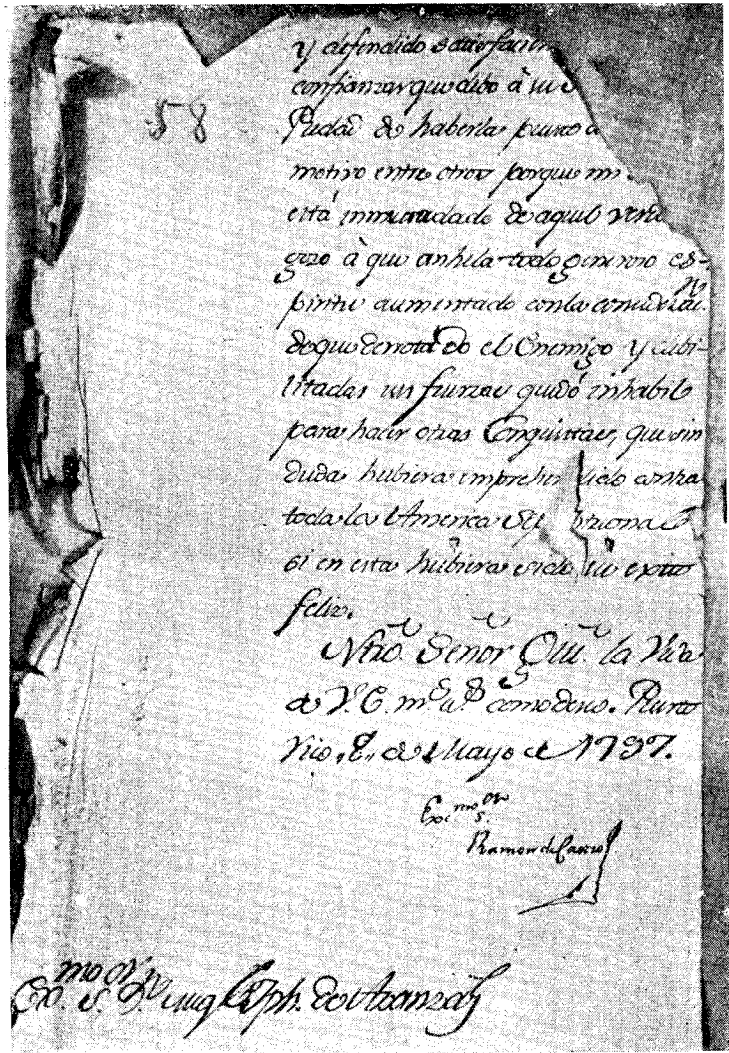 58
y defendido satisfacion
confianzas que debo à su S
Piedad de haberla puesto a
motivo entre otros porque mi
está inmundado de aquel verda
gozo à que anhela todo generoso es-
piritu aumentado con la considerazn.
de que derrotado el Enemigo y debi-
litadas sus fuerzas quedó inhabil
para hacer otras Conquistas, que sin
duda hubiera emprehendido contra
toda la America
si en esta hubiera sido su exito
feliz.
Ntrō. Señor Gūe. la Vida
de V.E. ms. as. como deseo. Puerto
Rico, 8,, de Mayo de 1797.
Exmo. Sor.
Ramon de Castro
Exmo. Sor. Dn. Migl. Jph. de Azanza